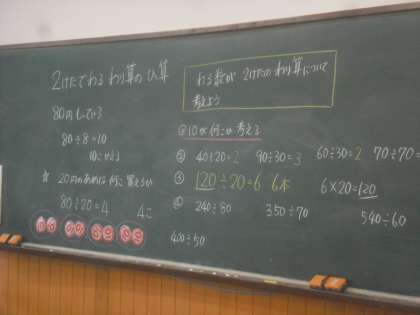 2けたでわるわり算のひ算
80円もっている
80÷8=10
☆ 20円のあめは何こ買えるか
80÷20=4 4こ
わる数が2けたのわり算について
考えよう
◎10が何こか考える
② 40÷20=2 90÷30=3 60÷30=2 70÷70=
③ 120÷20=6 6本 6×20=120
④ 240÷80 350÷70 540÷60
400÷50